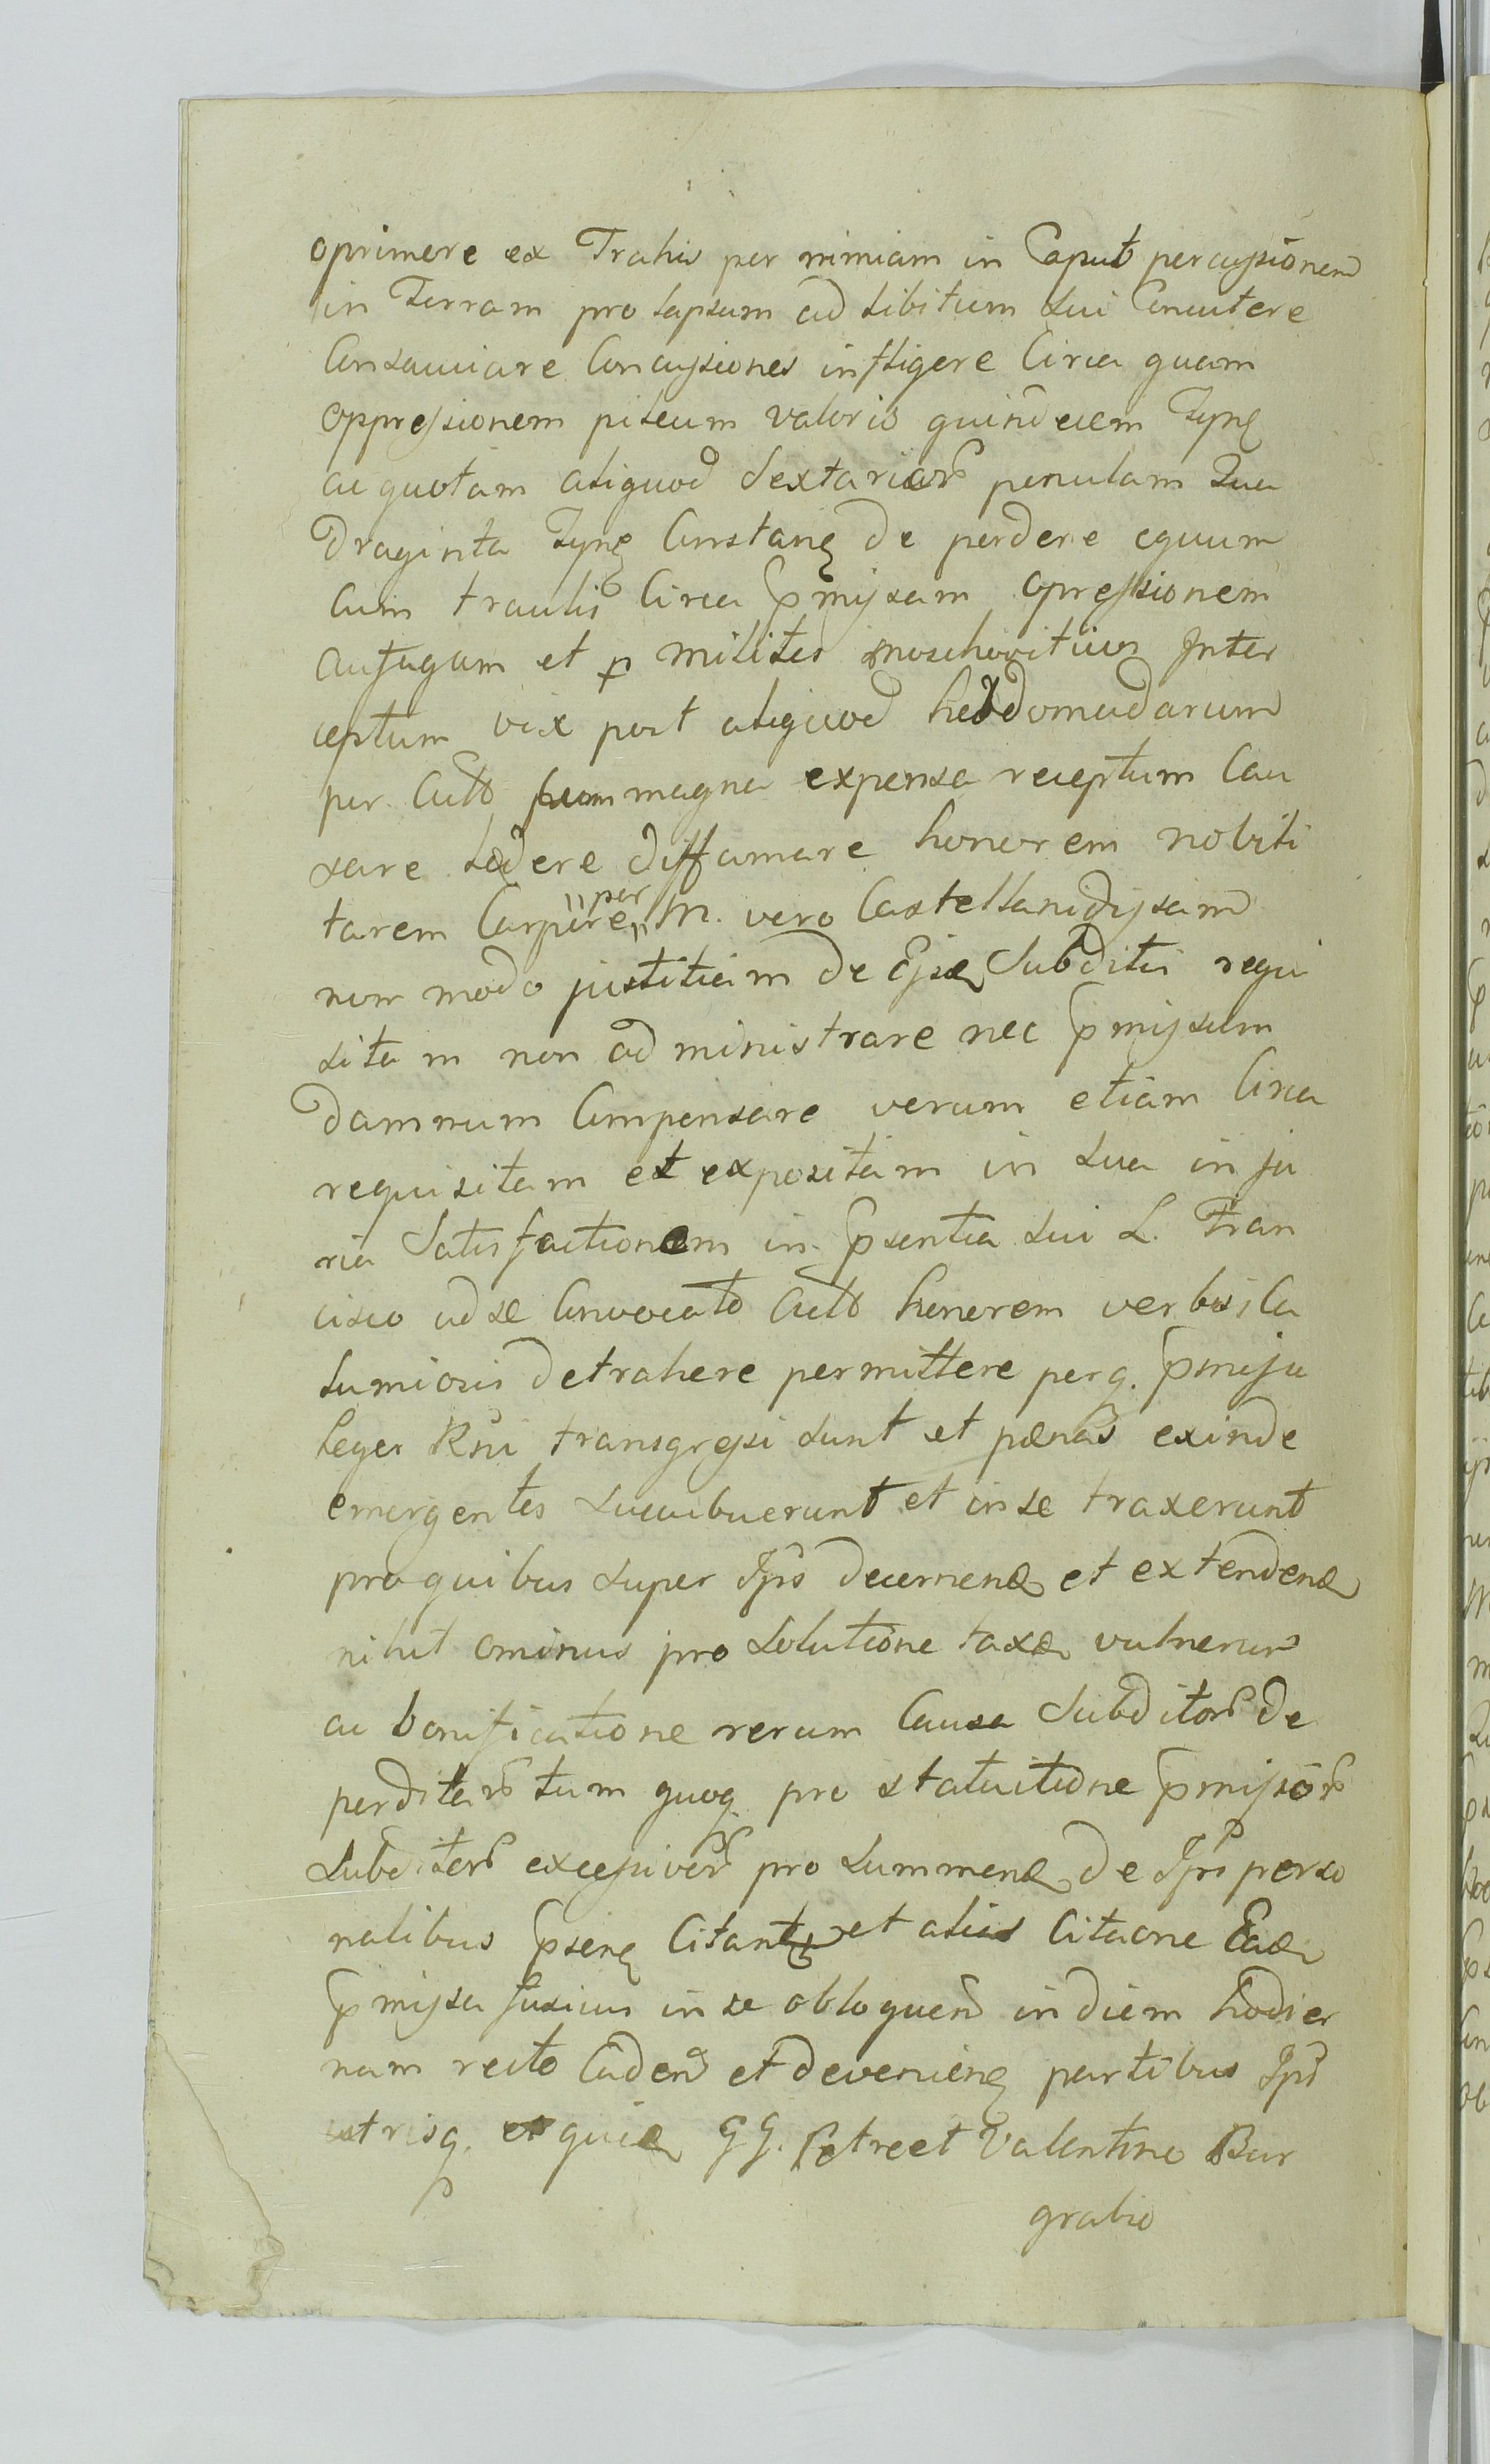 oprimere ex Trahis per nimiam in Caput percussionem
in Terram pro lapsum ad libitum sui Concutere
Consauciare Concussiones infligere Circa quam
oppressionem pileum valoris quindecem Tynf
ac quotam aliquod Sextarior penulam Qua
draginta Tynf Constan de perdere equum
Cum traulis Circa pmissam opressionem
aufugam et p milites moschoviticos Inter
ceptum vix post aliquod hebdomadarum
per Actb cum magna expensa receptum Cau
sare ledere diffamare honorem nobili
tarem Carpere "per" M. vero Castellanidissam
non modo justitiam de Ejsa Subditis requi
sitam non administrare nec pmissum
damnum Compensare verum etiam Circa
requisitam et expositam in sua inju
ria Satisfactionem in psentia sui L. Fran
cisco ad se Convocato Actb honorem verbis Ca
lumiosis detrahere permittere per q. pmissa
leges Rni transgressi sunt et pænas exinde
emergentes sucubuerunt et in se traxerunt
pro quibus super Ips decernen et extenden
nihil ominus pro Solutione taxæ vulnerum
ac bonificatione rerum Causa Subditor de
perditar tum quoq pro statuitione pmissor
Subditor excessivor pro summen de Ips perso
nalibus psen Citant et alias Citaone Ead
pmissa fusius in se obloquen in diem hodier
nam recto Caden et devenien partibus Ips
utrisq. quia GG. Petro et Valentino Bur
grabio